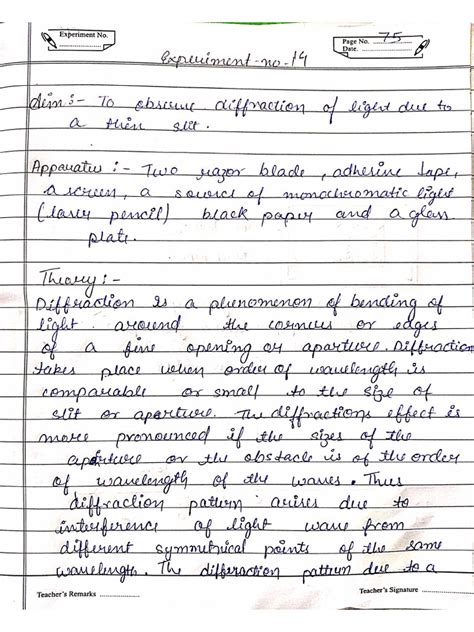 Experiment No.
Page No. 75
Date.
Experiment-no-14
Aim :- To observe diffraction of light due to
a thin slit.
Apparatus :- Two razor blade, adhesive tape,
a screen, a source of monochromatic light
(laser pencil) black paper and a glass
plate.
Theory :-
Diffraction is a phenomenon of bending of
light around the corners or edges
of a fine opening or aparture. Diffraction
takes place when order of wavelength is
comparable or small to the size of
slit or aparture. The diffractions effect is
more pronounced if the sizes of the
aparture or the obstacle is of the order
of wavelength of the waves. Thus
diffraction pattern arises due to
interference of light wave from
different symmetrical points of the same
wavelength. The diffraction pattern due to a
Teacher's Remarks
Teacher's Signature